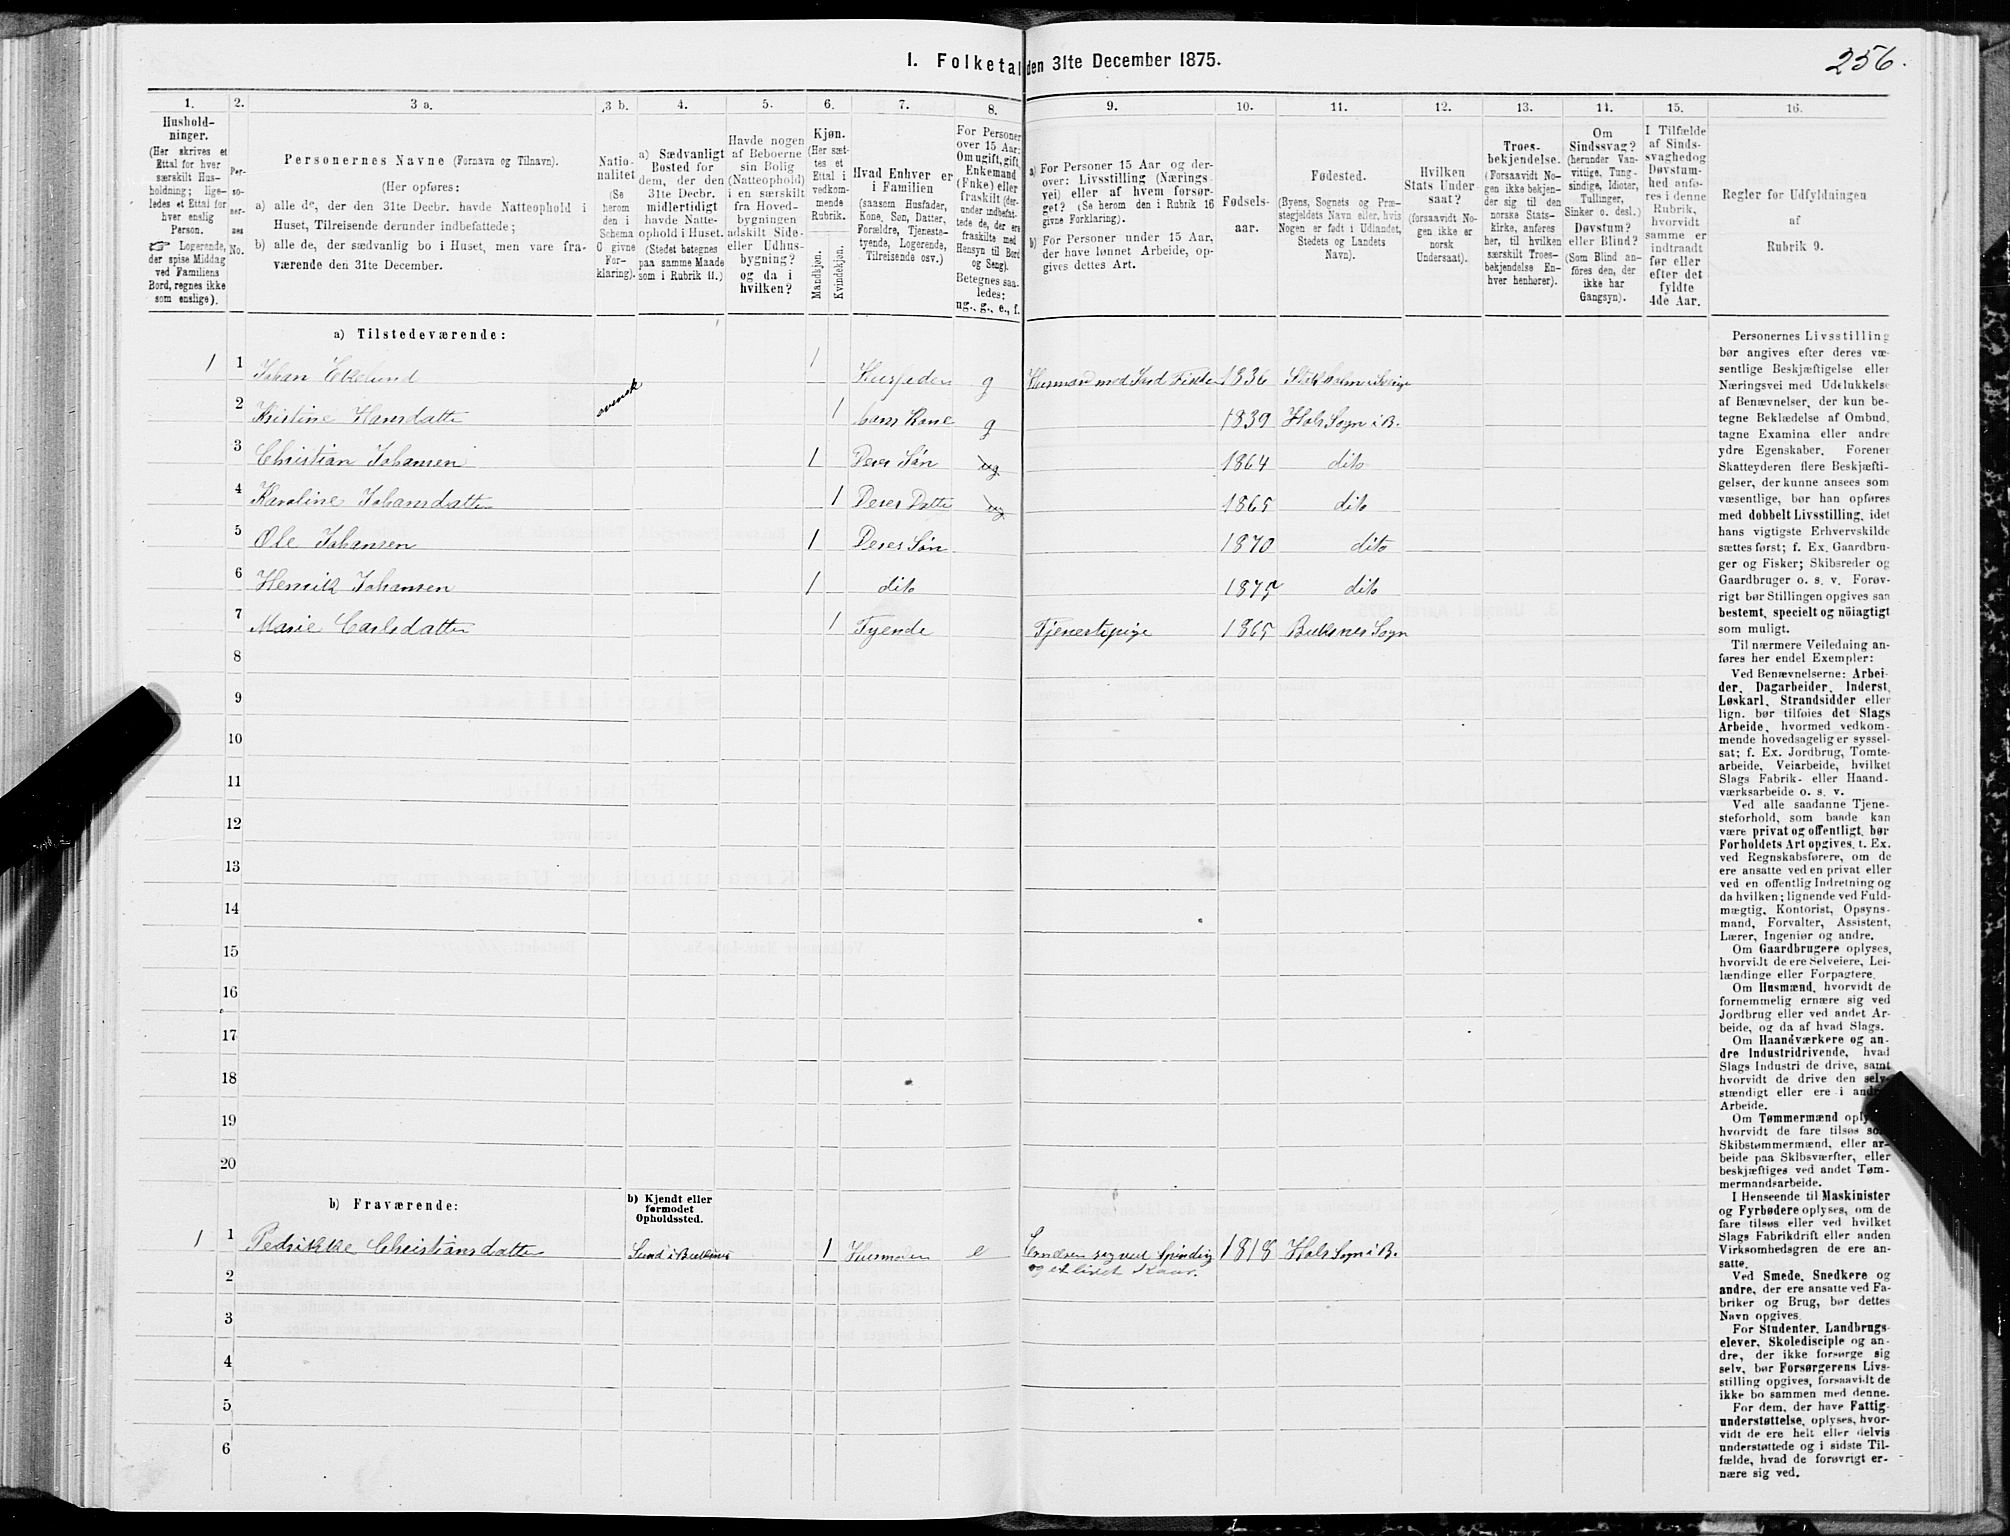 256.
1. Folketal den 31te December 1875.
1. 2. 3 a. 3 b. 4. 5. 6. 7. 8. 9. 10. 11. 12. 13. 14. 15. 16.
Hushold-
ninger.
(Her skrives et
Ettal for hver
særskilt Hus-
holdning; lige-
ledes et Ettal for
hver enslig
Person.
☞ Logerende,
der spise Middag
ved Familiens
Bord, regnes ikke
som enslige).
Per-
so-
ner-
nes
No.
Personernes Navne (Fornavn og Tilnavn).
(Her opføres:
a) alle de, der den 31te Decbr. havde Natteophold i
Huset, Tilreisende derunder indbefattede;
b) alle de, der sædvanlig bo i Huset, men vare fra-
værende den 31te December.
Natio-
nalitet
(Se
herom
den i
Schema
C givne
For-
klaring).
a) Sædvanligt
Bosted for
dem, der den
31te Decbr.
midlertidigt
havde Natte-
ophold i Huset.
(Stedet betegnes
paa samme Maade
som i Rubrik 11.)
Havde nogen
af Beboerne
sin Bolig
(Natteophold)
i en særskilt
fra Hoved-
bygningen
adskilt Side-
eller Udhus-
bygning?
og da i
hvilken?
Kjøn.
(Her sæt-
tes et
Ettal i
vedkom-
mende
Rubrik.
Mandkjøn.
Kvindekjøn.
Hvad Enhver er
i Familien
(saasom Husfader,
Kone, Søn, Datter,
Forældre, Tjeneste-
tyende, Logerende,
Tilreisende osv.)
For Personer
over 15 Aar:
Om ugift, gift,
Enkemand
(Enke) eller
fraskilt (der-
under indbefat-
tede de, der ere
fraskilte med
Hensyn til Bord
og Seng).
Betegnes saa-
ledes:
ug., g., e., f.
a) For Personer 15 Aar og der-
over: Livsstilling (Nærings-
vei) eller af hvem forsør-
get? (Se herom den i Rubrik 16
givne Forklaring).
b) For Personer under 15 Aar,
der have lønnet Arbeide, op-
gives dettes Art.
Fødsels-
aar.
Fødested.
(Byens, Sognets og Præ-
stegjeldets Navn eller, hvis
Nogen er født i Udlandet,
Stedets og Landets
Navn).
Hvilken
Stats Under-
saat?
(forsaavidt No-
gen ikke er
norsk
Undersaat).
Troes-
bekjendelse.
(Forsaavidt No-
gen ikke bekjen-
der sig til den
norske Stats-
kirke, anføres
her, til hvilken
særskilt Troes-
bekjendelse En-
hver henhører).
Om
Sindssvag?
(herunder Van-
vittige, Tung-
sindige, Idioter,
Tullinger,
Sinker o. desl.)
Døvstum?
eller Blind?
(Som Blind an-
føres den, der
ikke har
Gangsyn).
I Tilfælde
af Sinds-
svaghed og
Døvstum-
hed anfø-
res i denne
Rubrik,
hvorvidt
samme er
indtraadt
før eller
efter det
fyldte
4de Aar.
Regler for Udfyldningen
af
Rubrik 9.
a) Tilstedeværende:
1 1 Johan Ekelund svensk 1 Husfader g Husmand med Jord Fisker 1836 Stokholm i Sverige
2 Kristine Hansdatter 1 hans Kone g 1839 Hols Sogn i B.
3 Christian Johansen 1 Deres Søn ug 1864 dito
4 Karoline Johansdatter 1 Deres Datte ug 1865 dito
5 Ole Johansen 1 Deres Søn 1870 dito
6 Henrik Johansen 1 dito 1875 dito
7 Marie Carlsdatter 1 Tyende Tjenestepige 1865 Buksnes Sogn
8
9
10
11
12
13
14
15
16
17
18
19
20
b) Fraværende:
b) Kjendt eller
formodet
Opholdssted.
1 1 Pedrikke Christiansdatter Sund i Buksnes 1 e Ernærer sig ved Spinding 1818 Hols Sogn i B.
og et lidet Kaar.
2
3
4
5
6
Personernes Livsstilling
bør angives efter deres væ-
sentlige Beskjæftigelse eller
Næringsvei med Udelukkelse
af Benævnelser, der kun be-
tegne Beklædelse af Ombud,
tagne Examina eller andre
ydre Egenskaber. Forener
Skatteyderen flere Beskjæfti-
gelser, der kunne ansees som
væsentlige, bør han opføres
med dobbelt Livsstilling, idet
hans vigtigste Erhvervskilde
sættes først; f. Ex. Gaardbru-
ger og Fisker; Skibsreder og
Gaardbruger o. s. v. Forøv-
rigt bør Stillingen opgives saa
bestemt, specielt og nöiagtigt
som muligt.
Til nærmere Veiledning an-
føres her endel Exempler:
Ved Benævnelserne: Arbei-
der, Dagarbeider, Inderst,
Løskarl, Strandsidder eller
lign. bør tilføies det Slags
Arbeide, hvormed vedkom-
mende hovedsagelig er syssel-
sat; f. Ex. Jordbrug, Tomte-
arbeide, Veiarbeide, hvilket
Slags Fabrik- eller Haand-
værksarbeide o. s. v.
Ved alle saadanne Tjene-
steforhold, som baade kan
være privat og offentligt, bør
Forholdets Art opgives, t. Ex.
ved Regnskabsførere, om de
ere ansatte ved en privat eller
ved en offentlig Indretning og
da hvilken; lignende ved Fuld-
mægtig, Kontorist, Opsyns-
mand, Forvalter, Assistent,
Lærer, Ingeniør og andre.
Om Gaardbrugere oplyses,
hvorvidt de ere Selveiere, Lei-
lændinge eller Forpagtere.
Om Husmænd, hvorvidt de
fornemmelig ernære sig ved
Jordbrug eller ved andet Ar-
beide, og da af hvad Slags.
Om Haandværkere og an-
dre Industridrivende, hvad
Slags Industri de drive, samt
hvorvidt de drive den selv-
stændigt eller ere i andres
Arbeide.
Om Tømmermænd oplyses
hvorvidt de fare tilsøs som
Skibstømmermænd, eller ar-
beide paa Skibsværfter, eller
beskjæftiges ved andet Tøm-
mermandsarbeide.
I Henseende til Maskinister
og Fyrbødere oplyses, om de
fare tilsøs eller ved hvilket
Slags Fabrikdrift eller anden
Virksomhedsgren de ere an-
satte.
Ved Smede, Snedkere og
andre, der ere ansatte ved Fa-
briker og Brug, bør dettes
Navn opgives.
For Studenter, Landbrugs-
elever, Skoledisciple og an-
dre, der ikke forsørge sig
selv, bør Forsørgerens Livs-
stilling opgives, forsaavidt de
ikke bo sammen med denne.
For dem, der have Fattig-
understøttelse, oplyses, hvor-
vidt de ere helt eller delvis
understøttede og i sidste Til-
fælde, hvad de forøvrigt er-
nære sig ved.